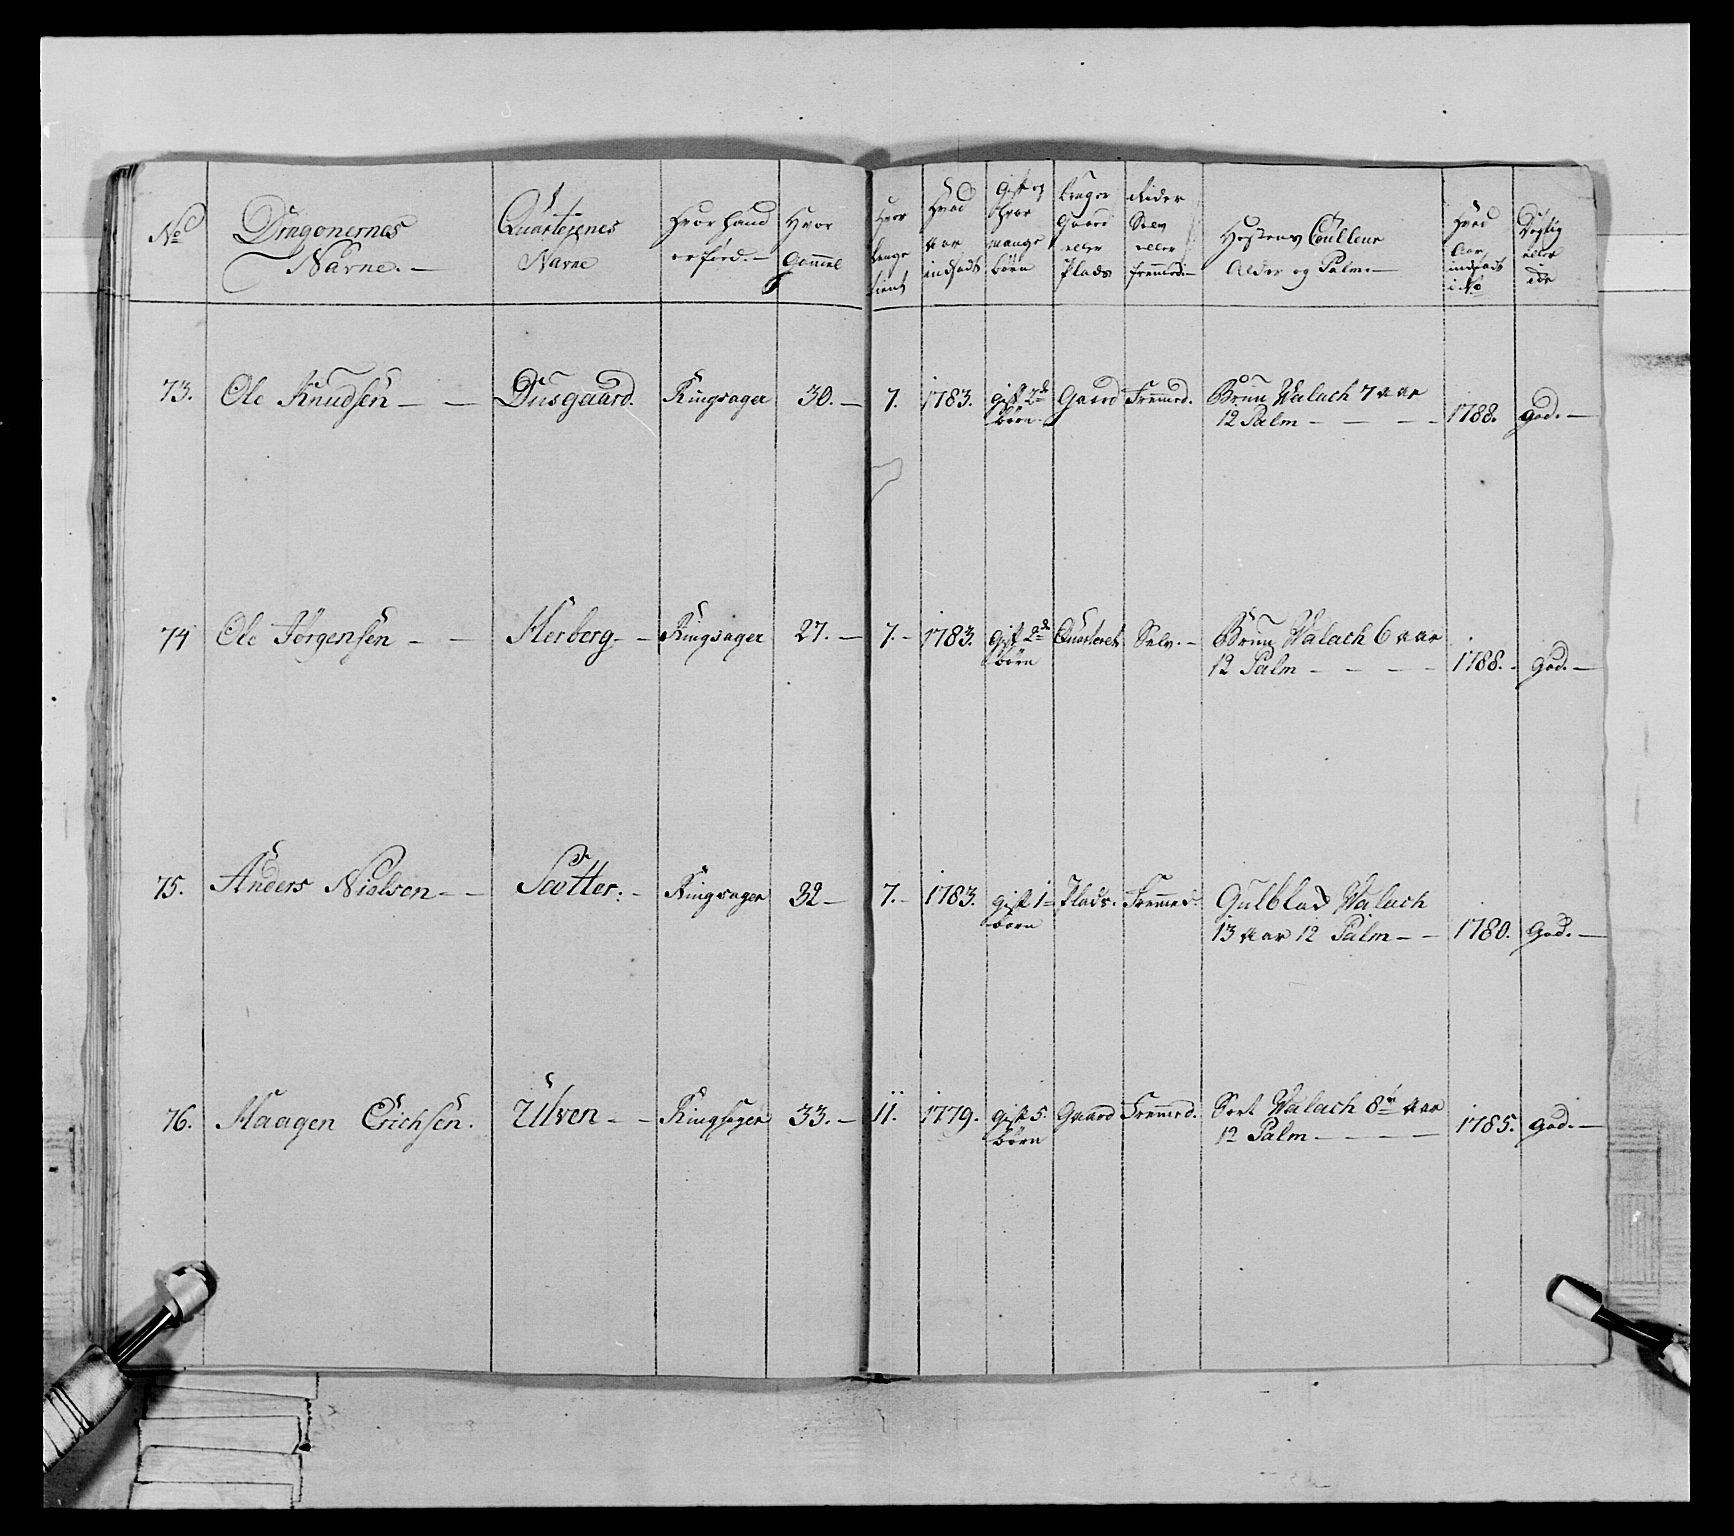 No
Dragonernes Navne.
Quarterenes Navne
Hvor hand er fød.
Hvor Gammel
Hvor længe tient
Hvad aar indsadt
Gift og Hvor mange børn
bruger Gaard eller Plads
Rider Selv eller fremmed.
Hestens Coulleur Alder og Palm.
Hvad Aar indsadt i No
Dygtig eller ei
73. Ole Knudsen Dusgaard. Ringsager 30. 7. 1783. gift 2de børn Gaard Fremmed. Brun Valach 7 aar
12 Palm 1788. god.
74 Ole Jørgensen Herberg Ringsager 27. 7. 1783. Gift 2de børn Quarteret Selv. Brun Valach 6 aar
12 Palm 1788. god.
75. Anders Nielsen Ringsager 32 7. 1783. gift 1 børn Plads. Fremmed. Gulblad Valach
13 aar 12 Palm 1780. god.
76. Haagen Erichsen. Ulven Ringsager 33. 11. 1779. gift 5 børn Gaard Fremmed. Sort Valach 8te aar
12 Palm 1785. god.